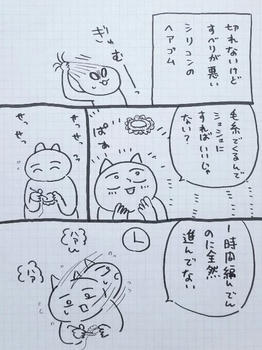 切れないけど
すべりが悪い
シリコンの
ヘアゴム
ぎゅむ
毛糸でくるんで
シュシュに
すればいいじゃ
ない?
ぱぁ
せっせっ
せっせっ
1時間編んでん
のに全然
進んでない
ハァ
ハァ